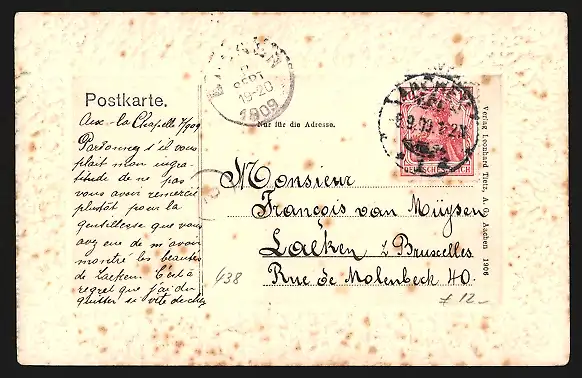 Postkarte.
Aix-la-Chapelle 7/9 09
Pardonnez s'il vous
plait mon ingra-
titude de ne pas
vous avoir remercié
plustôt pour la
gentillesse que vous
avez eue de m'avoir
montré les beautés
de Laeken. C'est à
regret que j'ai dû
quitter si vite de chez
LAEKEN
SEPT
19-20
1909
AACHEN
DEUTSCHES REICH
Nur für die Adresse.
Monsieur
François van Müysen
Laeken z Bruxelles
Rue de Molenbeek 40.
438
12-
Verlag Leonhard Tietz, A. G. Aachen 1906